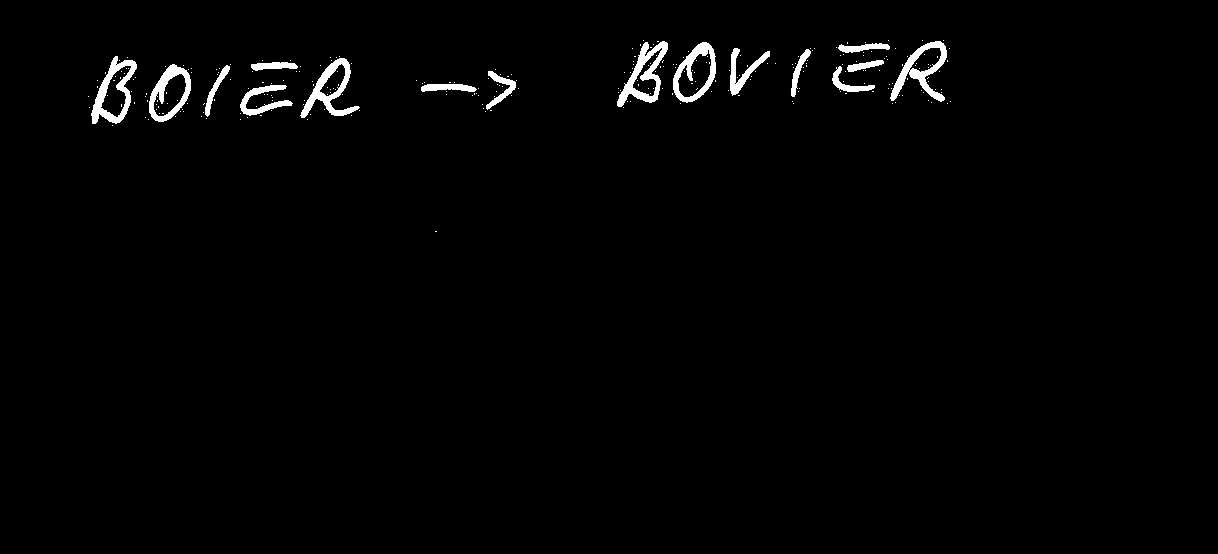 BOIER -> BOVIER